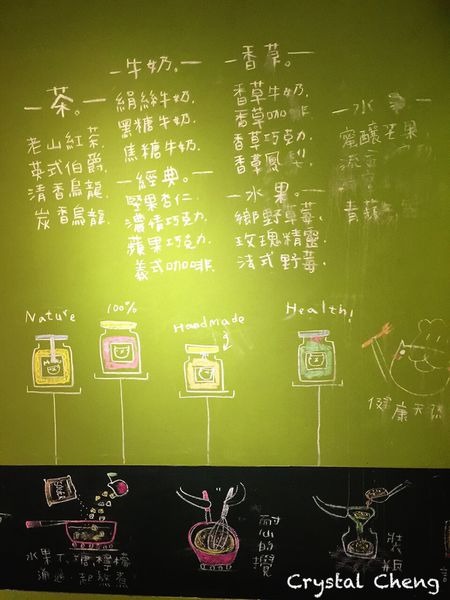 茶。
老山紅茶.
英式伯爵.
清香烏龍.
炭香烏龍.
牛奶。
絹絲牛奶.
黑糖牛奶.
焦糖牛奶.
經典。
堅果杏仁.
濃情巧克力.
蘋果巧克力.
義式咖啡.
香草。
香草牛奶.
香草咖啡.
香草巧克力.
香草鳳梨.
水果。
鄉野草莓.
玫瑰精蜜.
法式野莓.
水
蜜釀芒果.
青蘋
Nature
100%
Handmade
Health!
健康天然
水果丁、糖、檸檬
耐心的攪
裝瓶
Crystal Cheng